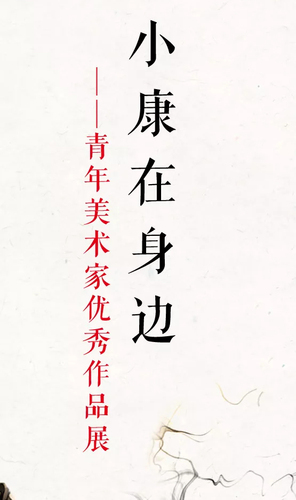 小康在身边
——青年美术家优秀作品展